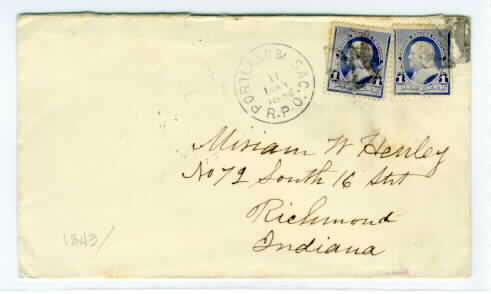 PORTLAND & SAC.
11
MAY
R.P.O.
1
1
Miriam W Henley
No 72 South 16 Strt
Richmond
Indiana
1343/